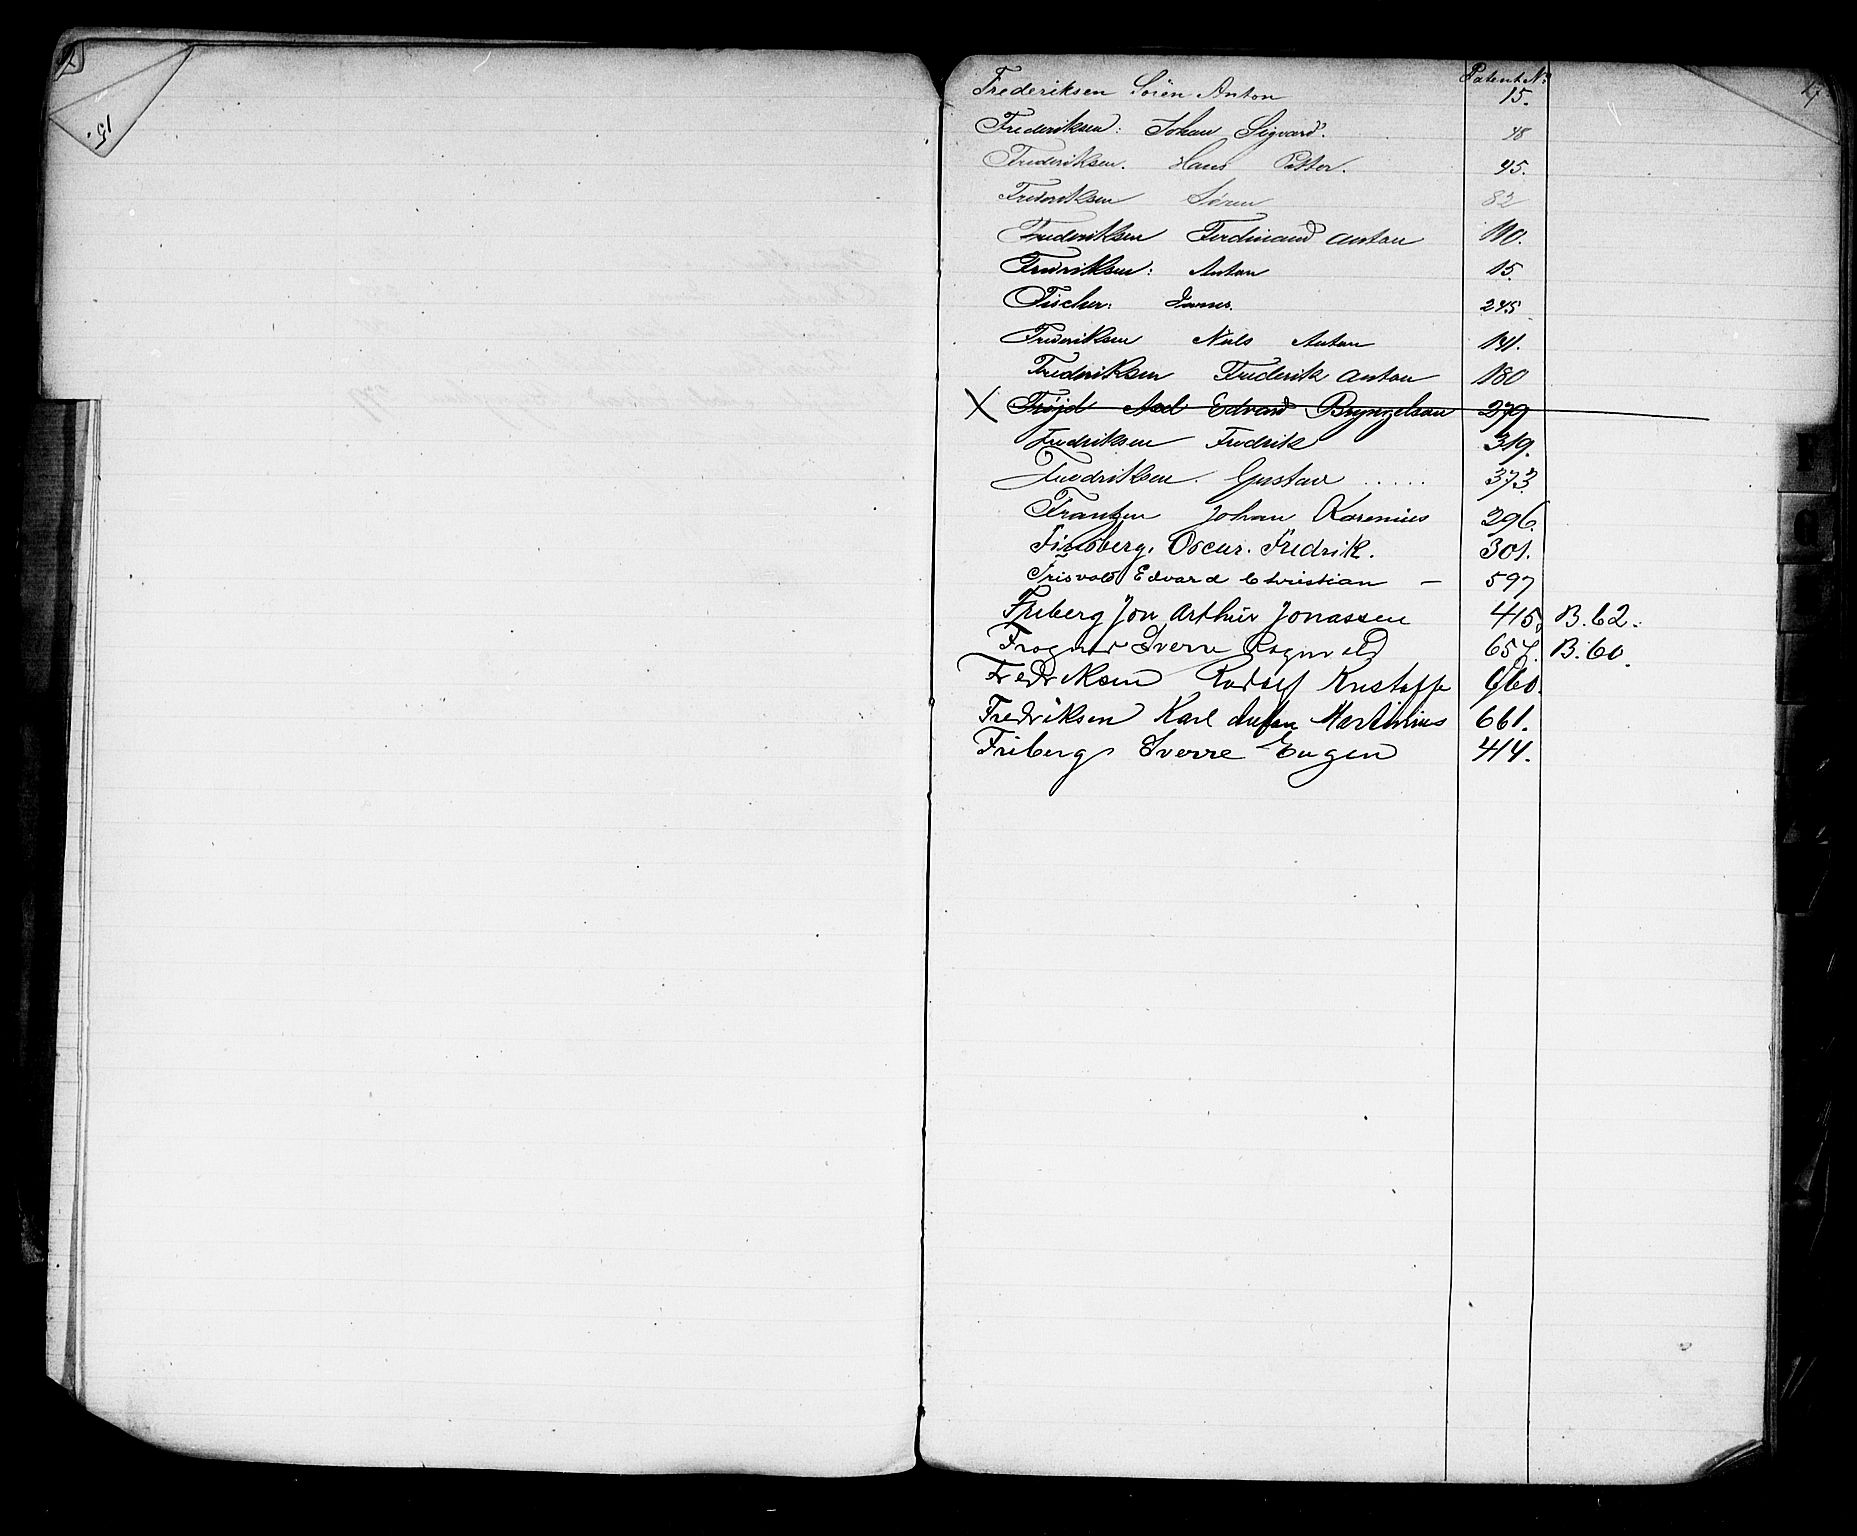 15.
Patent No
Frederiksen Sören Anton 15.
Frederiksen: Johan Sigvard. 48
Frederiksen. Hans Petter. 45.
Frederiksen Søren 82
Frederiksen Ferdinand Anton 110.
Fredriksen: Anton 15.
Fischer: James. 245
Frederiksen Niels Anton 141.
Frederiksen Frederik Anton 180
X Frøjd Axel Edvard Bryngelsson 279
Fredriksen Fredrik 319.
Fredriksen. Gustav ..... 373
Frantzen Johan Korenius 296.
Finsberg. Oscar. Fredrik. 301.
Frisvold Edvard Christian — 597
Friberg Jon Arthur Jonassen 415. B. 62.
Frogner Sverre Ragnvald 657. B. 60.
Fredriksen Rudolf Kristoffe 660.
Fredriksen Karl Martinius 661.
Friberg Sverre Eugen 414.
F
G